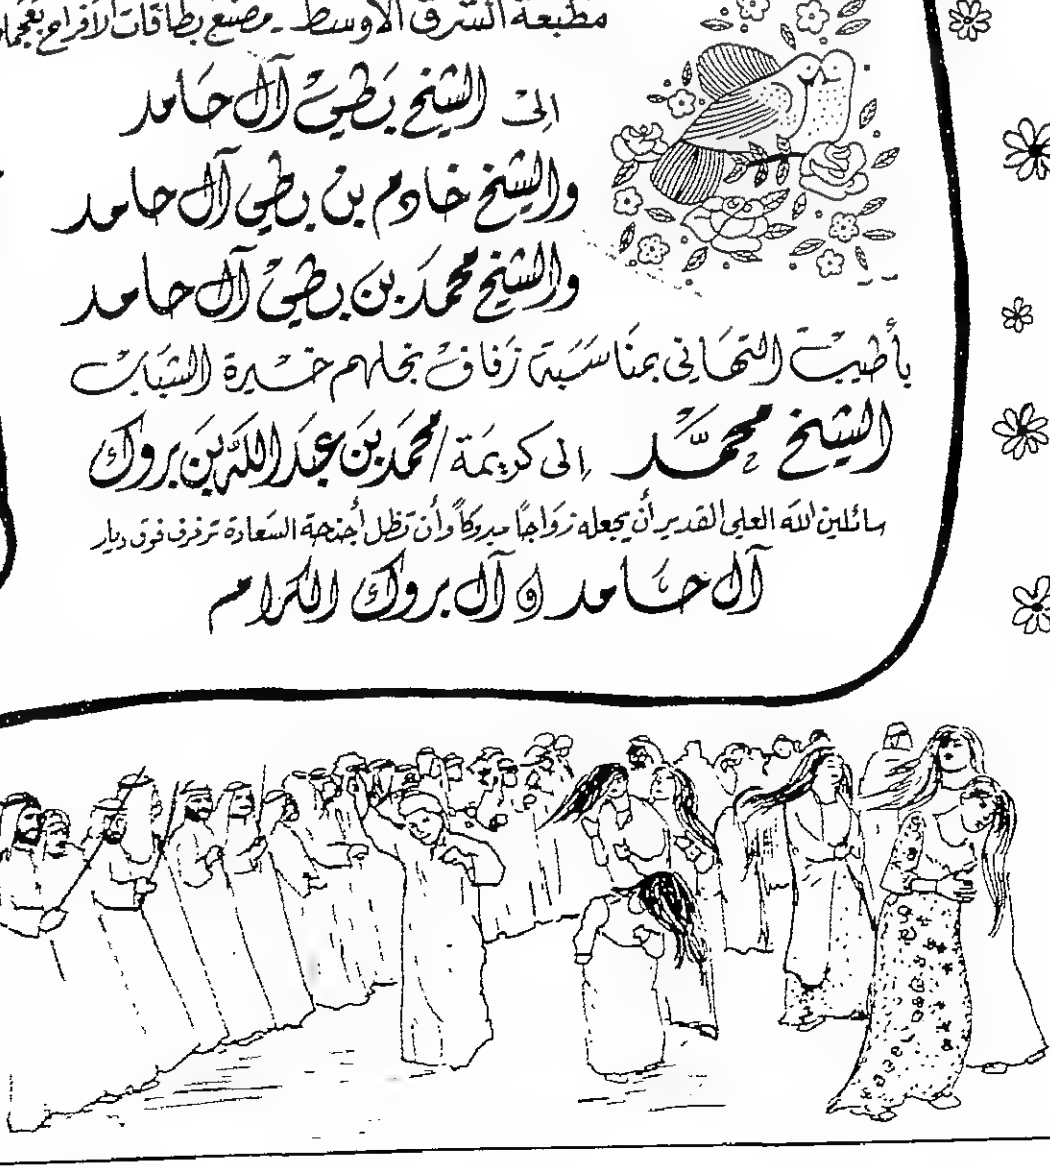 مطبعة الشرق الأوسط ـ مصنع بطاقات الأفراح بعجمان
الى الشيخ بطي آل حامد
والشيخ خادم بن بطي آل حامد
والشيخ محمد بن بطي آل حامد
بأطيب التهاني بمناسبة زفاف نجلهم خيرة الشباب
الشيخ محمد الى كريمة / محمد بن عبدالله بن بروك
سائلين الله العلي القدير أن يجعله زواجًا مبروكاً وأن تظل أجنحة السعادة ترفرف فوق ديار
آل حامد و آل بروك الكرام